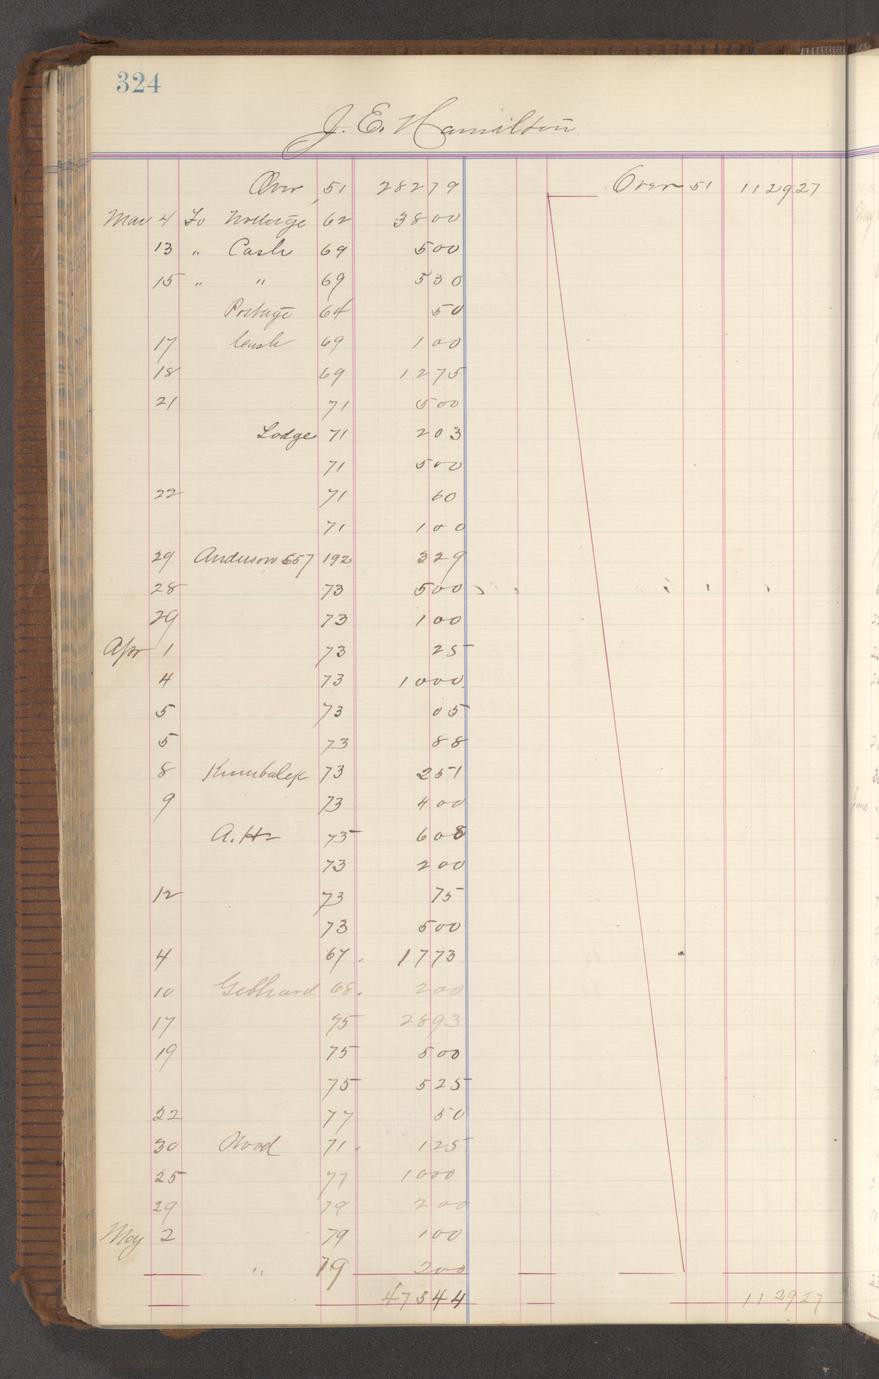 324
J. E. Hamilton
Over 51 28279 Over 51 112927
Mar 4 To 62 3800
13 " Cash 69 500
15 " " 69 530
Postage 64 50
17 Cash 69 100
18 69 1275
21 71 500
Lodge 71 203
71 500
22 71 60
71 100
29 Anderson 557 192 329
28 73 500
29 73 100
Apr 1 73 25
4 73 1000
5 73 05
5 73 88
8 73 251
9 73 400
A. H 75 608
73 200
12 73 75
73 500
4 67 1773
10 Gebhard 68 200
17 75 2893
19 75 500
75 525
22 77 50
30 Wood 71 125
25 77 1000
29 79 200
May 2 79 100
" 79 200
47344 112927